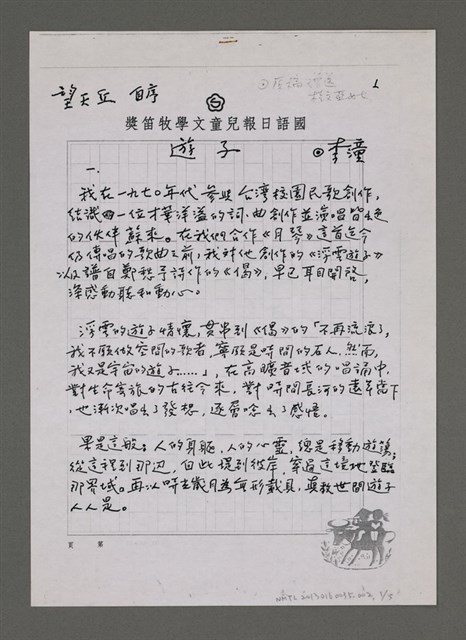 望天丘 自序
國語日報兒童文學牧笛獎
遊子 ◎李潼
一.
我在一九七〇年代參與台灣校園民歌創作,
結識一位才華洋溢的詞、曲創作並演唱皆是
的伙伴蘇來。在我們合作《月琴》這首迄今
仍傳唱的歌曲之前,我對他創作的《浮雲遊子》
以及譜自鄭愁予詩作的《偈》,早已耳目開啓,
深感動聽和動心。
浮雲的遊子情懷,貫串到《偈》的「不再流浪了,
我不願做空間的歌者,寧願是時間的石人,然而,
我又是宇宙的遊子……」,在高曠昔式的唱誦中,
對生命客旅的古往今來,對時間長河的遠年當下,
也漸次唱出了發想,逐層唸出了感悟。
果是這般。人的身軀,人的心靈,總是移動遊蕩;
從這裡到那边,自此堤到彼岸,穿過這境地登臨
那界域。再以時光歲月為無形載具,莫教世間遊子
人人是。
頁 第